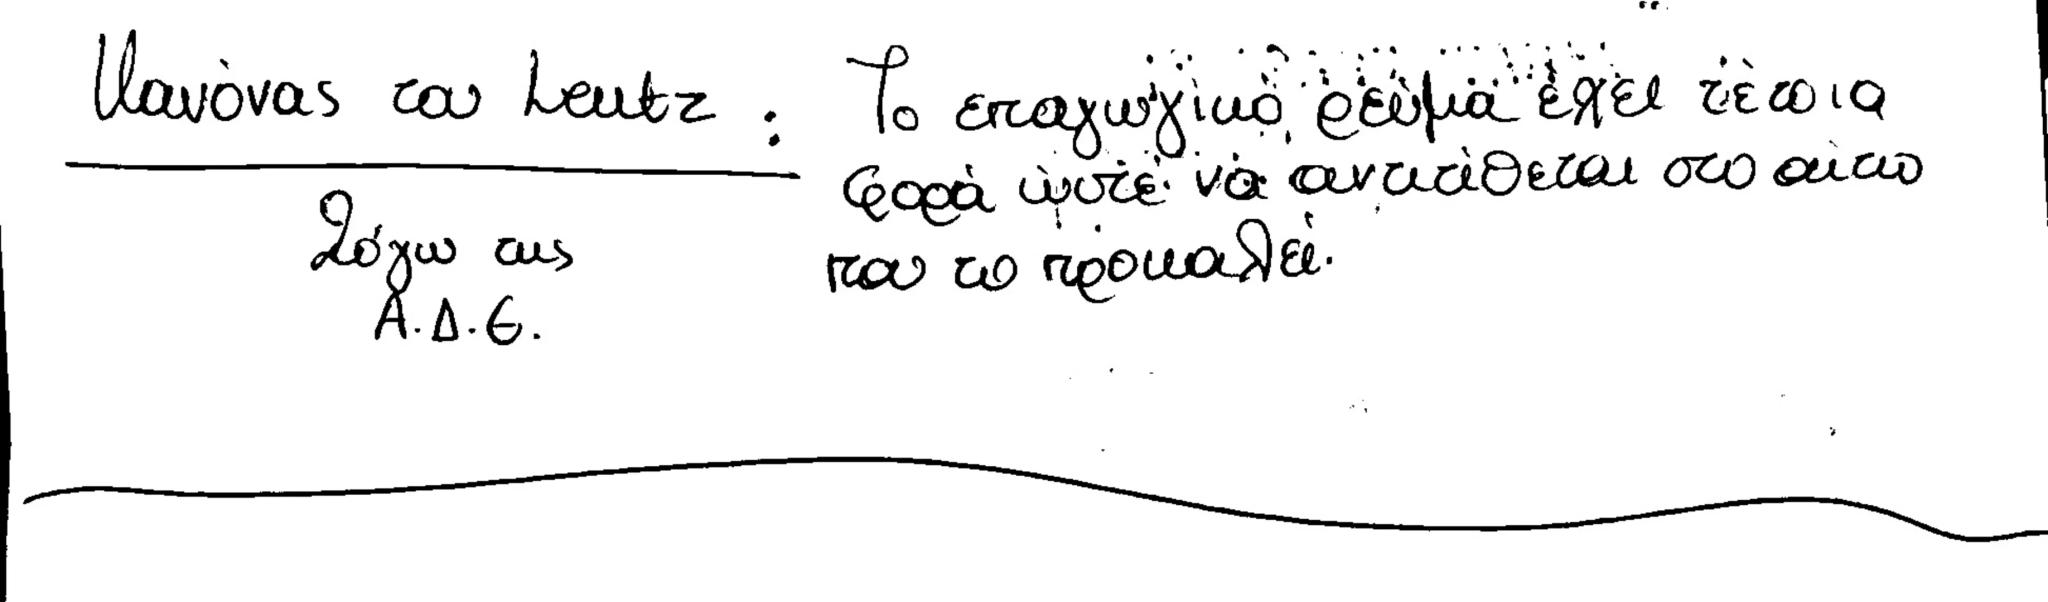 Κανόνας του Lentz : Το επαγωγικό ρεύμα έχει τέτοια
φορά ώστε να αντιτίθεται στο αίτιο
που το προκαλεί.
Λόγω της
Α.Δ.Ε.